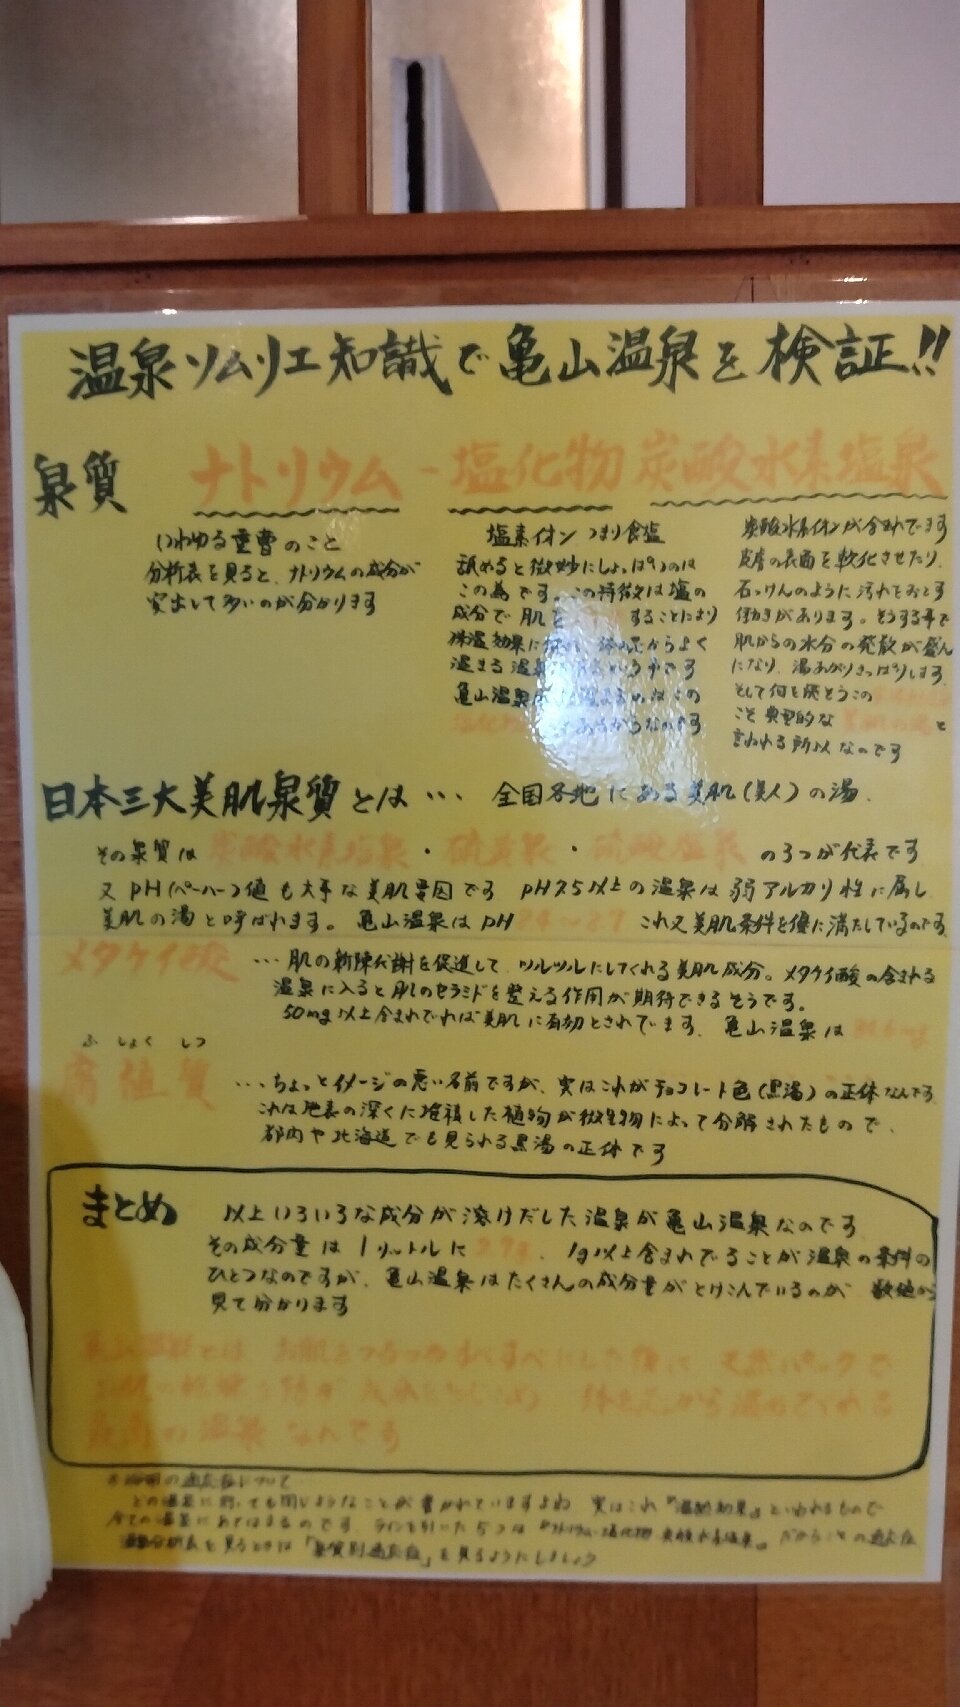 温泉ソムリエ知識で亀山温泉を検証!!
泉質 ナトリウム-塩化物炭酸水素塩泉
いわゆる重曹のこと
分析表を見ると、ナトリウムの成分が
突出して多いのが分かります
塩素イオン つまり食塩
舐めると微妙にしょっぱいのは
この為です。この特徴は塩の
成分で肌を することにより
保温効果に 体の芯からよく
温まる温泉
亀山温泉が この
あるからなのです
炭酸水素イオンが含まれてます
皮膚の表面を軟化させたり、
石っけんのように汚れをおとす
働きがあります。そうする事で
肌からの水分の発散が盛ん
になり、湯あがりさっぱりします。
そして何を隠そうこの
こそ典型的な と
言われる所以なのです
日本三大美肌泉質とは… 全国各地にある美肌(美人)の湯、
その泉質は 炭酸水素塩泉・硫黄泉・硫酸塩泉 の3つが代表です
又PH(ペーハー)値も大事な美肌要因です PH7.5以上の温泉は弱アルカリ性に属し
美肌の湯と呼ばれます。亀山温泉はPH これ又美肌条件を優に満たしているのです。
メタケイ酸 …肌の新陳代謝を促進して、ツルツルにしてくれる美肌成分。メタケイ酸の含まれる
温泉に入ると肌のセラミドを整える作用が期待できるそうです。
50mg以上含まれていれば美肌に有効とされてます、亀山温泉は
ふ しょく しつ
腐植質 …ちょっとイメージの悪い名前ですが、実はこれがチョコレート色(黒湯)の正体なんです。
これは地表の深くに堆積した植物が微生物によって分解されたもので、
都内や北海道でも見られる黒湯の正体です
まとめ 以上いろいろな成分が溶けだした温泉が亀山温泉なのです
その成分量は1リットルに 、1g以上含まれてることが温泉の条件の
ひとつなのですが、亀山温泉はたくさんの成分量がとけこんでいるのが 数値から
見て分かります
とは お肌をつるつるすべすべにした後に 天然パックで
体の芯から温めてくれる
最高の温泉なんです
どの温泉に行っても同じようなことが書かれていますよね 実はこれ『温熱効果』といわれるもので
全ての温泉にあてはまるのです。
を見るときは「泉質別適応症」を見るようにしましょう